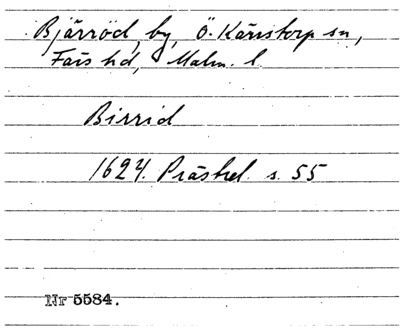 Bjärröd, by, Ö. Kärrstorp sn,
Färs hd, Malm. l.
Birrid
1624. Prästrel. s. 55
Nr 5584.